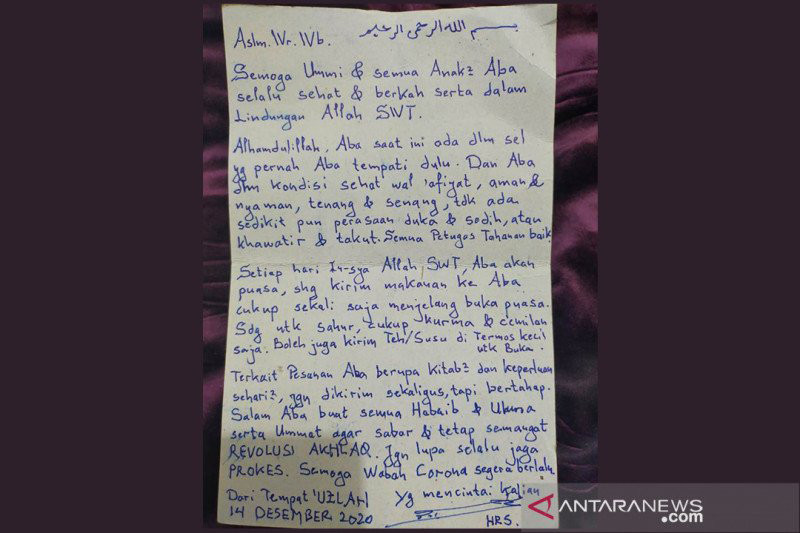 بسم الله الرحمن الرحيم
Aslm. Wr. Wb.
Semoga Ummi & semua Anak² Aba
selalu sehat & berkah serta dalam
Lindungan Allah SWT.
Alhamdulillah, Aba saat ini ada dlm sel
yg pernah Aba tempati dulu. Dan Aba
dlm kondisi sehat wal 'afiyat, aman &
nyaman, tenang & senang, tdk ada
sedikit pun perasaan duka & sedih, atau
khawatir & takut. Semua Petugas Tahanan baik.
Setiap hari In-sya Allah SWT, Aba akan
puasa, shg kirim makanan ke Aba
cukup sekali saja menjelang buka puasa.
Sdg utk sahur, cukup kurma & cemilan
saja. Boleh juga kirim Teh/Susu di Termos kecil
utk Buka.
Terkait Pesanan Aba berupa kitab² dan keperluan
sehari², jgn dikirim sekaligus, tapi bertahap.
Salam Aba buat semua Habaib & Ulama
serta Ummat agar sabar & tetap semangat
REVOLUSI AKHLAQ. Jgn lupa selalu jaga
PROKES. Semoga Wabah Corona segera berlalu.
Dari Tempat 'UZLAH
14 DESEMBER 2020
Yg mencintai Kalian
HRS.
ANTARANEWS
.com